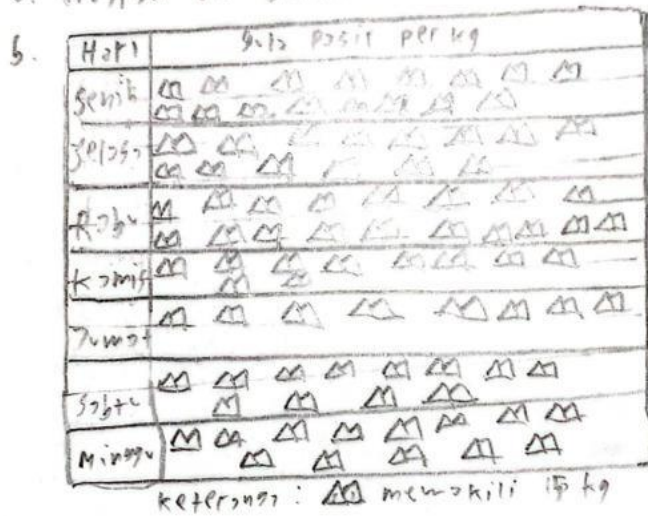 b.
Hari gula pasir per kg
Senin
Selasa
Rabu
Kamis
Jumat
Sabtu
Minggu
keterangan : memakili 15 kg